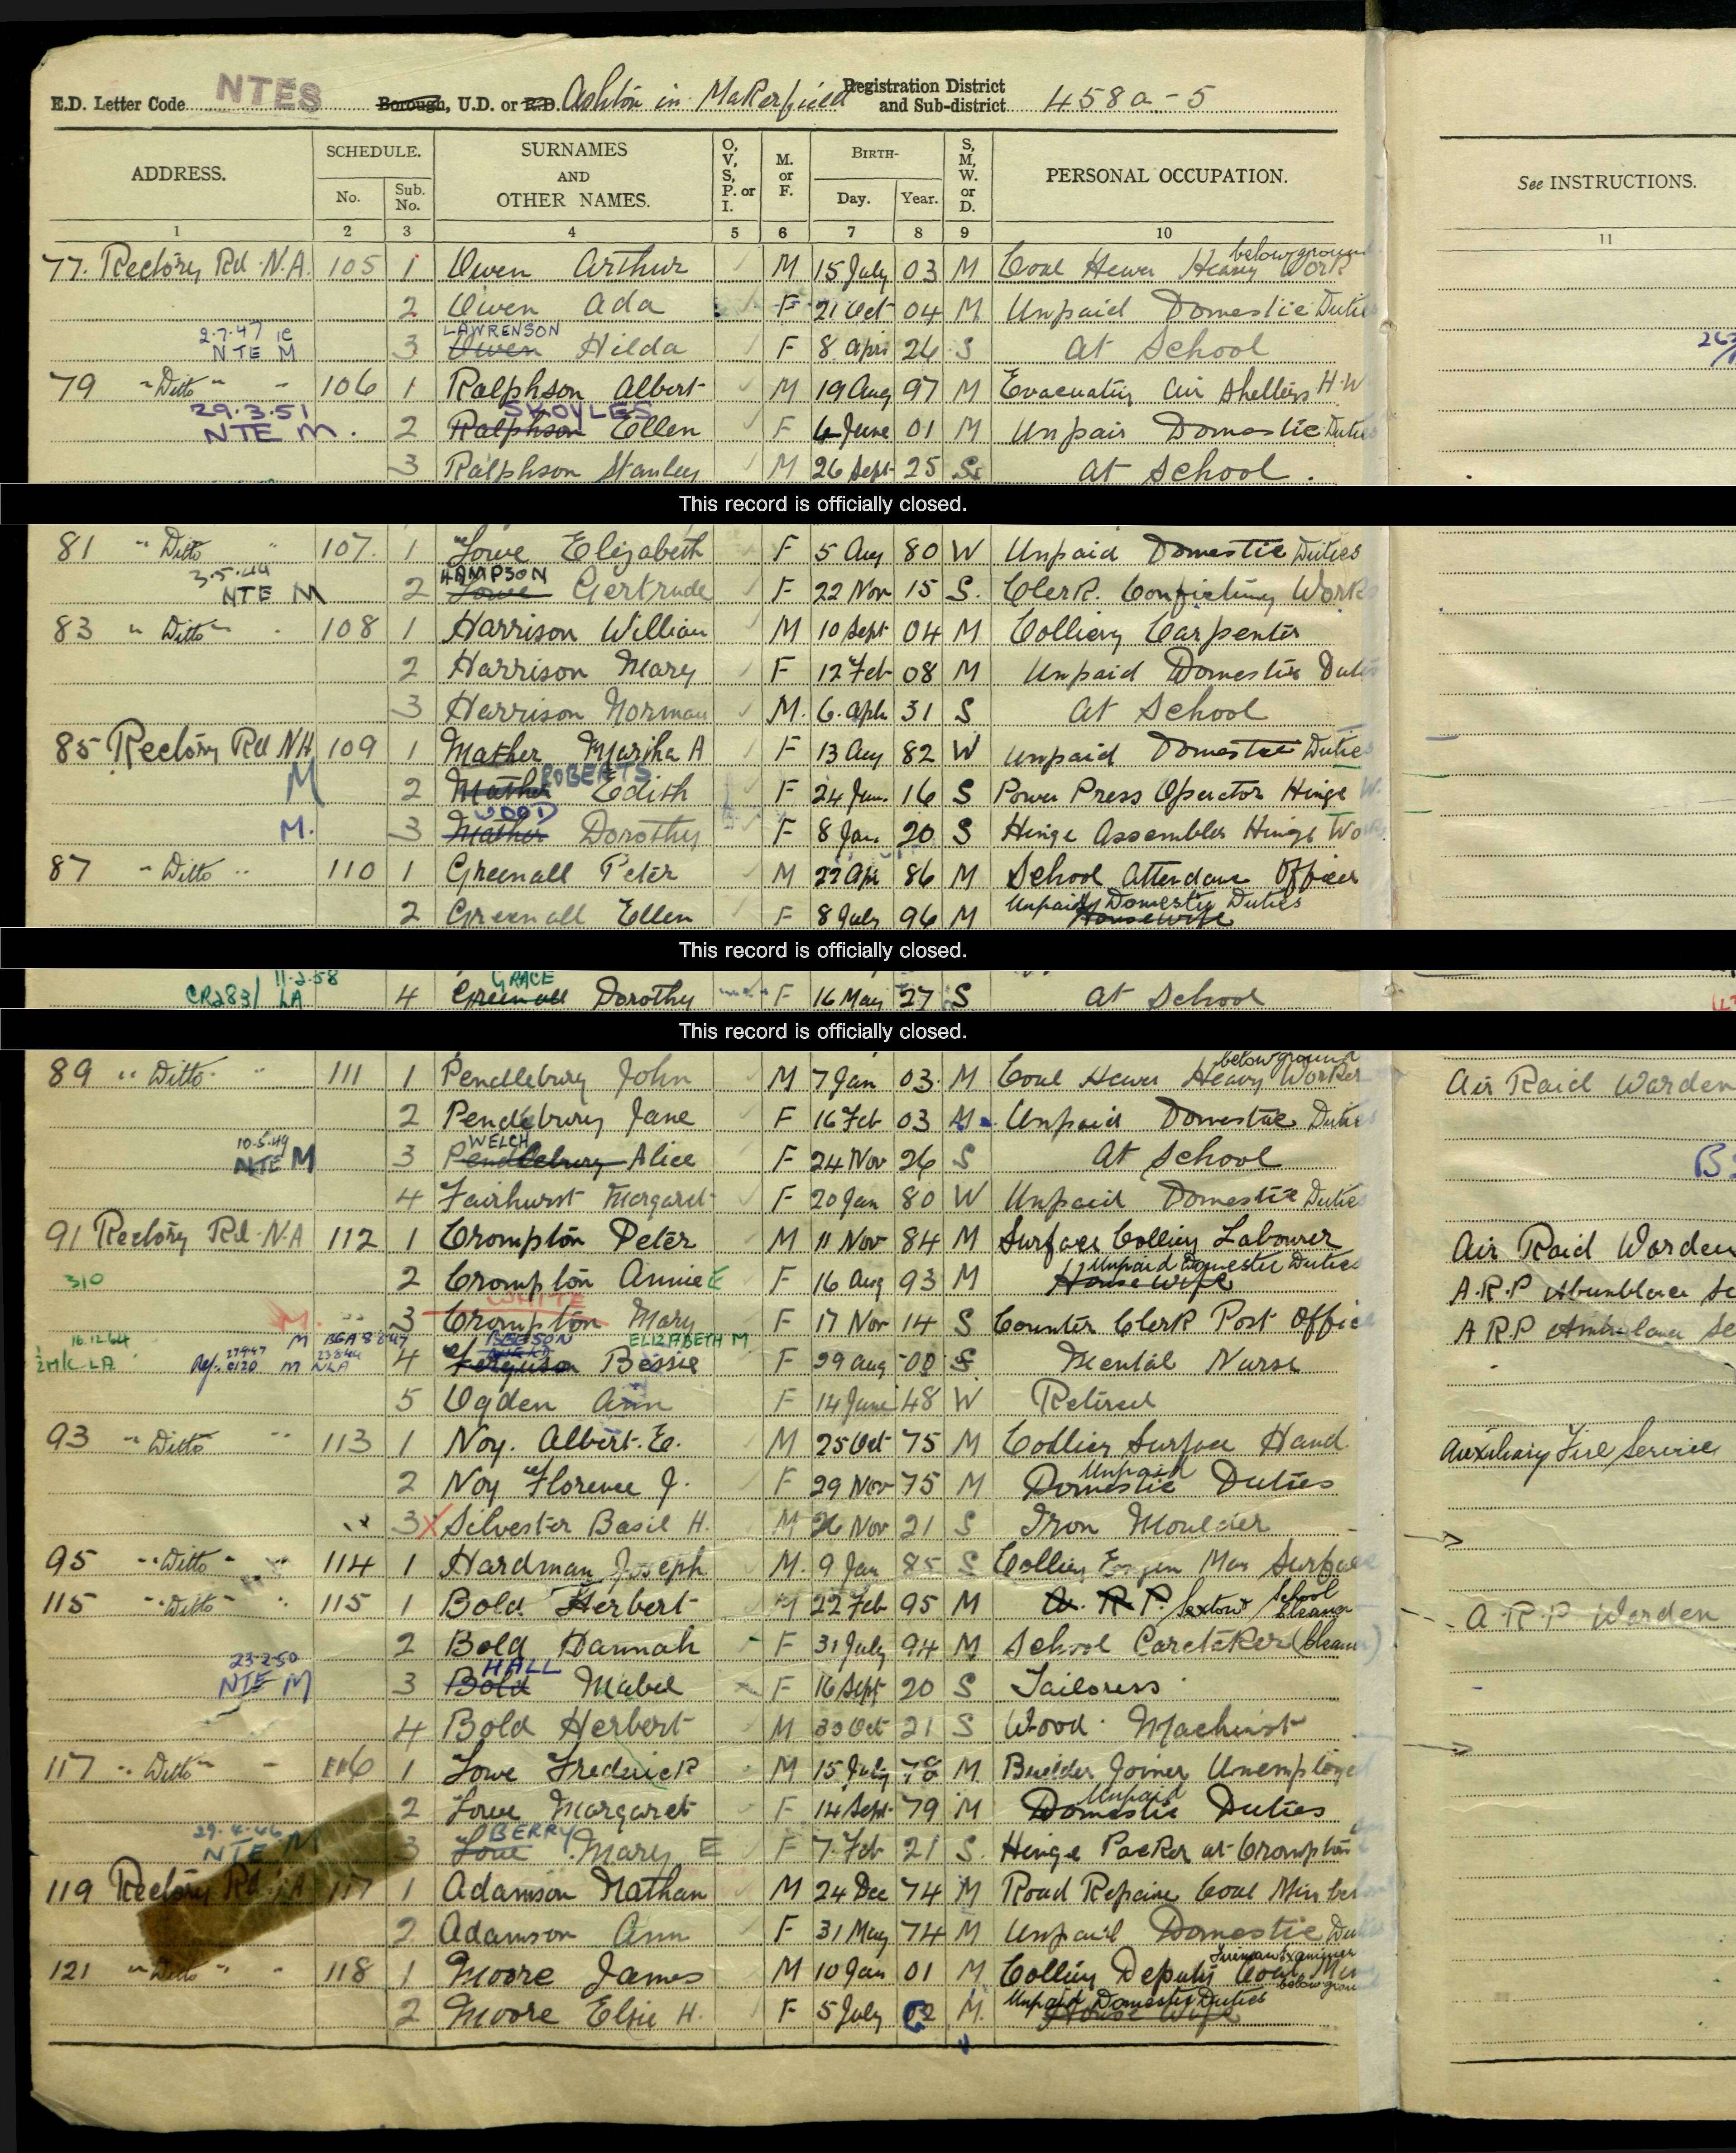 E.D. Letter Code NTES Borough, U.D. or R.D. Ashton in Makerfield Registration District and Sub-district 458a-5
ADDRESS. SCHEDULE. No. Sub. No. SURNAMES AND OTHER NAMES. O, V, S, P. or I. M. or F. BIRTH- Day. Year. S, M, W. or D. PERSONAL OCCUPATION. See INSTRUCTIONS.
1 2 3 4 5 6 7 8 9 10 11
77. Rectory Rd N.A. 105 1 Owen Arthur M 15 July 03 M Coal Hewer Heavy Work belowground
2 Owen Ada F 21 Oct 04 M Unpaid Domestic Duties
2.7.47 NTE M 3 Owen LAWRENSON Hilda F 8 Apri 26 S At School
79 "Ditto" 106 1 Ralphson Albert M 19 Aug 97 M Evacuating Air Shelters H.W
29.3.51 NTE M. 2 Ralphson SKOYLES Ellen F 4 June 01 M Unpair Domestic Duties
3 Ralphson Stanley M 26 Sept 25 S At School.
This record is officially closed.
81 "Ditto" 107. 1 Lowe Elizabeth F 5 Aug 80 W Unpaid Domestic Duties
3.5.44 NTE M 2 Lowe HAMPSON Gertrude F 22 Nov 15 S. Clerk. Works
83 "Ditto" 108 1 Harrison William M 10 Sept 04 M Colliery Carpenter
2 Harrison Mary F 12 Feb 08 M Unpaid Domestic Duties
3 Harrison Norman M. 6. Aph 31 S At School
85 Rectory Rd NA 109 1 Mather Martha A F 13 Aug 82 W Unpaid Domestic Duties
M 2 Mather ROBERTS Edith F 24 Jun. 16 S Power Press Operator Hinge W.
M. 3 Mather WOOD Dorothy F 8 Jan 20 S Hinge Assembler Hinge Works
87 "Ditto" 110 1 Greenall Peter M 22 Apr 86 M School Attendance Officer
2 Greenall Ellen F 8 July 96 M Unpaid Domestic Duties Housewife
This record is officially closed.
CR283/ LA 11-2-58 4 Greenall GRACE Dorothy F 16 May 27 S At School
This record is officially closed.
89 "Ditto" 111 1 Pendlebury John M 7 Jan 03 M Coal Hewer Heavy Worker belowground Air Raid Warden
2 Pendlebury Jane F 16 Feb 03 M Unpaid Domestic Duties
10.5.49 NTE M 3 Pendlebury WELCH Alice F 24 Nov 26 S At School
4 Fairhurst Margaret F 20 Jan 80 W Unpaid Domestic Duties
91 Rectory Rd N.A 112 1 Crompton Peter M 11 Nov 84 M Surface Colliery Labourer Air Raid Warden
310 2 Crompton Annie E F 16 Aug 93 M Housewife Unpaid Domestic Duties A.R.P
M. 3 Crompton WHITE Mary F 17 Nov 14 S Counter Clerk Post Office A R P Ambulance
16.12.64 4 Ferguson BEESON Bessie ELIZABETH M. F 29 Aug 00 S Mental Nurse
5 Ogden Ann F 14 June 48 W Retired
93 "Ditto" 113 1 Noy. Albert. E. M 25 Oct 75 M Collier Surface Hand Auxiliary Fire Service
2 Noy Florence J. F 29 Nov 75 M Unpaid Domestic Duties
3 X Silvester Basil H. M 26 Nov 21 S Iron Moulder
95 "Ditto" 114 1 Hardman Joseph M. 9 Jan 85 S Colliery Man Surface
115 "Ditto" 115 1 Bold Herbert M 22 Feb 95 M A. R. P. Sexton / School Cleaner A.R.P Warden
2 Bold Hannah F 31 July 94 M School Caretaker (Cleaner)
23.2.50 NTE M 3 Bold HALL Mabel F 16 Sept 20 S Tailoress
4 Bold Herbert M 30 Oct 21 S Wood Machinist
117 "Ditto" 116 1 Lowe Frederick M 15 July 78 M Builder Joiner Unemployed
2 Lowe Margaret F 14 Sept 79 M Unpaid Domestic Duties
29.4.46 NTE M 3 Lowe BERRY Mary E F 7 Feb 21 S. Hinge Packer at Crompton
119 Rectory Rd NA 117 1 Adamson Nathan M 24 Dec 74 M Road Repairer Coal Min
2 Adamson Ann F 31 May 74 M Unpaid Domestic Duties
121 "Ditto" 118 1 Moore James M 10 Jan 01 M Colliery Deputy Fireman Examiner Coal Mine belowground
2 Moore Elsie H. F 5 July 02 M. Unpaid Domestic Duties House Wife